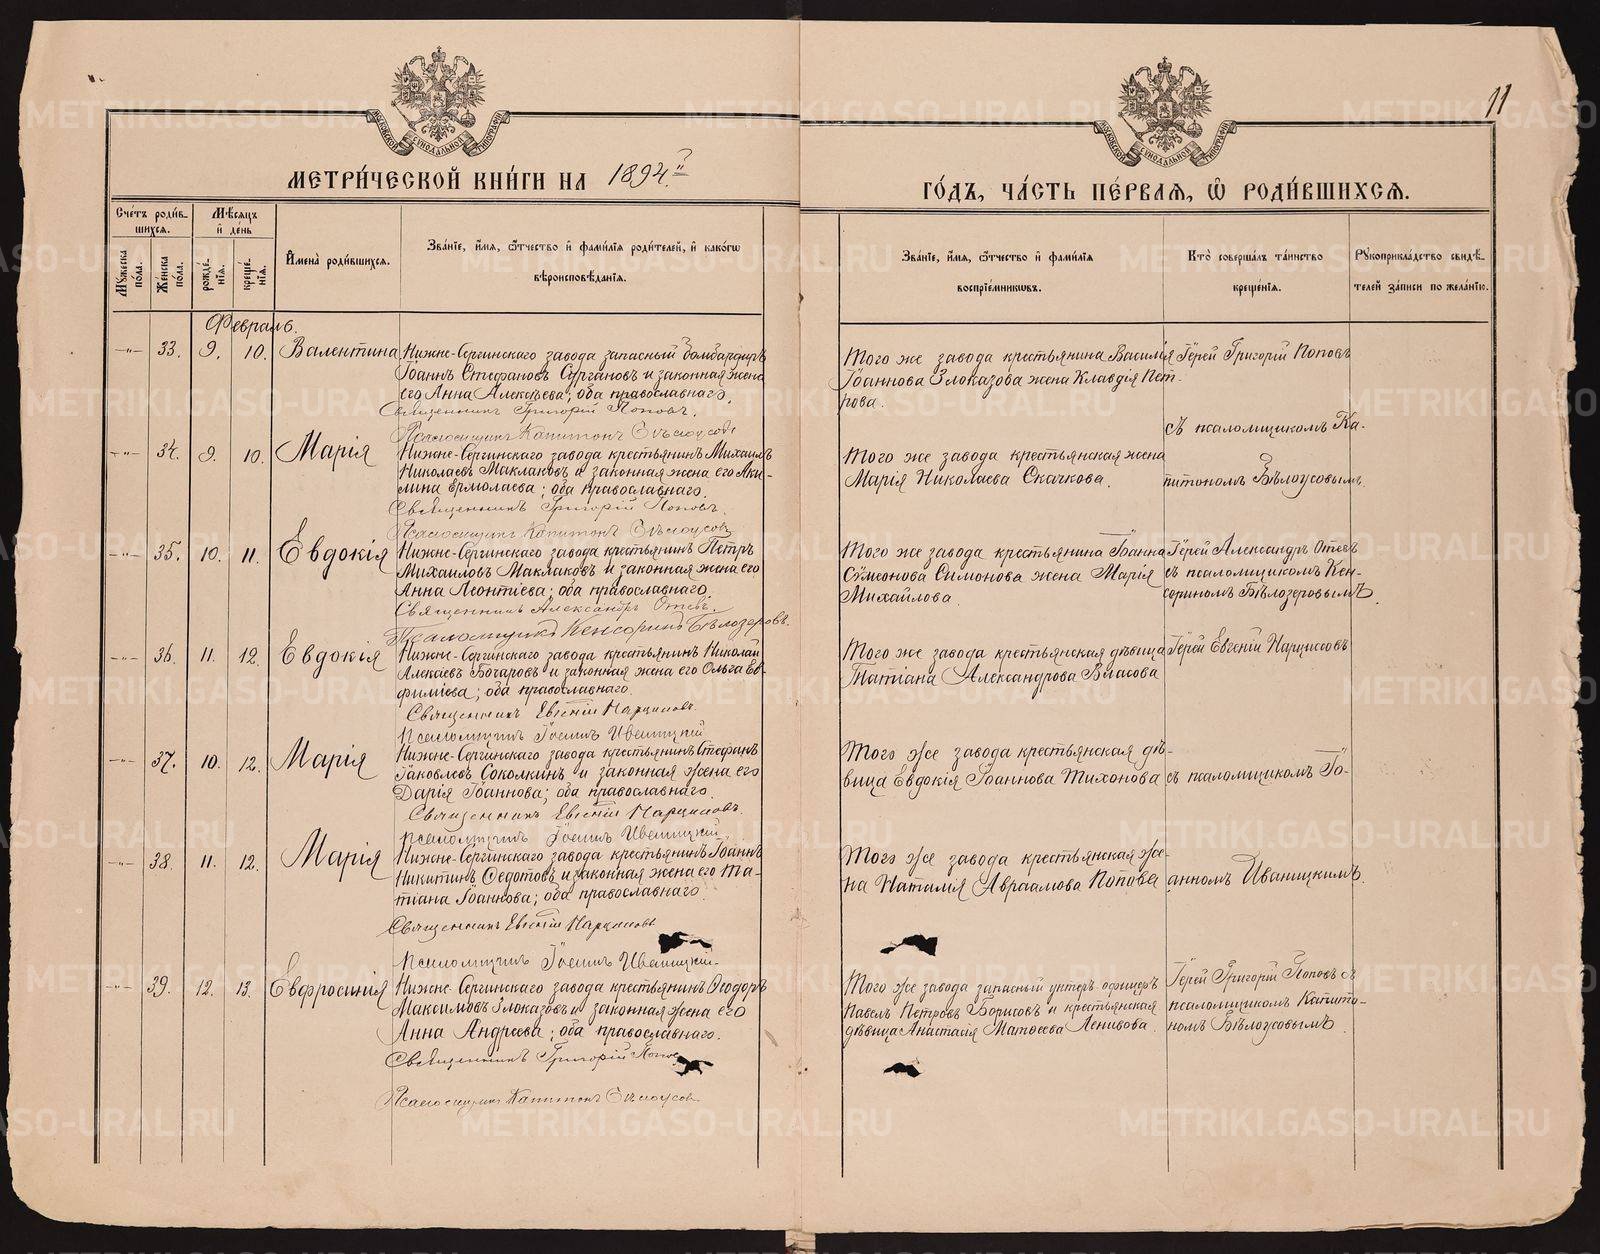 11
МОСКОВСКОЙ СѴНОДАЛЬНОЙ ТИПОГРАФІИ
МОСКОВСКОЙ СѴНОДАЛЬНОЙ ТИПОГРАФІИ
МЕТРИ́ЧЕСКОЙ КНИ́ГИ НА 1892
ГО́ДЪ, ЧА́СТЬ ПЕ́РВАЯ, Ѿ РОДИ́ВШИХСЯ.
Сче́тъ роди́в-
шихся.
Мѣ́сяцъ
и҆ де́нь
Мꙋ́жеска
по́ла.
Же́нска
по́ла.
рожде́-
нїѧ.
креще́-
нїѧ.
И҆мена̀ роди́вшихся.
Зва́нїе, и҆́мѧ, ѻ҆́тчество и҆ фами́лїѧ роди́телей, и҆ како́гѡ
вѣроисповѣ́данїѧ.
Зва́нїе, и҆́мѧ, ѻ҆́тчество и҆ фами́лїѧ
воспрїе́мникѡвъ.
Кто̀ соверша́лъ та́инство
креще́нїѧ.
Рꙋкоприкла́дство свидѣ́-
телей за́писи по жела́нїю.
Февраль.
-"- 33. 9. 10. Валентина
Нижне-Сергинскаго завода запасный бомбардиръ
Іоаннъ Стефановъ Сурановъ и законная жена
его Анна Алексѣева; оба православнаго.
Священникъ Григорій Поповъ.
Псаломщикъ Капитонъ Бѣлоусовъ
Того же завода крестьянина Василія
Іоаннова Злоказова жена Клавдія Пет-
рова.
Іерей Григорій Поповъ
-"- 34. 9. 10. Марія
Нижне-Сергинскаго завода крестьянинъ Михаилъ
Николаевъ Маклаковъ и законная жена его Аки-
лина Ермолаева; оба православнаго.
Священникъ Григорій Поповъ.
Псаломщикъ Капитонъ Бѣлоусовъ
Того же завода крестьянская жена
Марія Николаева Скачкова.
съ псаломщикомъ Ка-
питономъ Бѣлоусовымъ.
-"- 35. 10. 11. Евдокія
Нижне-Сергинскаго завода крестьянинъ Петръ
Михаиловъ Маклаковъ и законная жена его
Анна Леонтіева; оба православнаго.
Священникъ Александръ Отевъ.
Псаломщикъ Кенсоринъ Бѣлозеровъ.
Того же завода крестьянина Іоанна
Сѵмеонова Симонова жена Марія
Михайлова.
Іерей Александръ Отевъ
съ псаломщикомъ Кен-
сориномъ Бѣлозеровымъ.
-"- 36. 11. 12. Евдокія
Нижне-Сергинскаго завода крестьянинъ Николай
Алексѣевъ и законная жена его Ольга Ев-
фиміева; оба православнаго.
Священникъ Евгеній Нарциссовъ.
Псаломщикъ Іоаннъ Иваницкій
Того же завода крестьянская дѣвица
Татіана Александрова Власова
Іерей Евгеній Нарциссовъ
-"- 37. 10. 12. Марія
Нижне-Сергинскаго завода крестьянинъ Стефанъ
Іаковлевъ Соколкинъ и законная жена его
Дарія Іоаннова; оба православнаго.
Священникъ Евгеній Нарциссовъ.
Псаломщикъ Іоаннъ Иваницкій
Того же завода крестьянская дѣ-
вица Евдокія Іоаннова Тихонова
съ псаломщикомъ Іо-
-"- 38. 11. 12. Марія
Нижне-Сергинскаго завода крестьянинъ Іоаннъ
Никитинъ Ѳедотовъ и законная жена его Та-
тіана Іоаннова; оба православнаго.
Священникъ Евгеній Нарциссовъ
Псаломщикъ Іоаннъ Иваницкій.
Того же завода крестьянская же-
на Наталія Авраамова Попова
анномъ Иваницкимъ.
-"- 39. 12. 13. Евфросинія
Нижне-Сергинскаго завода крестьянинъ Ѳеодоръ
Максимовъ Злоказовъ и законная жена его
Анна Андреева; оба православнаго.
Священникъ Григорій Попов
Псаломщикъ Капитонъ Бѣлоусов
Того же завода запасный унтеръ-офицеръ
Павелъ Петровъ Борисовъ и крестьянская
дѣвица Анастасія Матѳеева Ленивова.
Іерей Григорій Поповъ съ
псаломщикомъ Капито-
номъ Бѣлоусовымъ.
METRIKI.GASO-URAL.RU